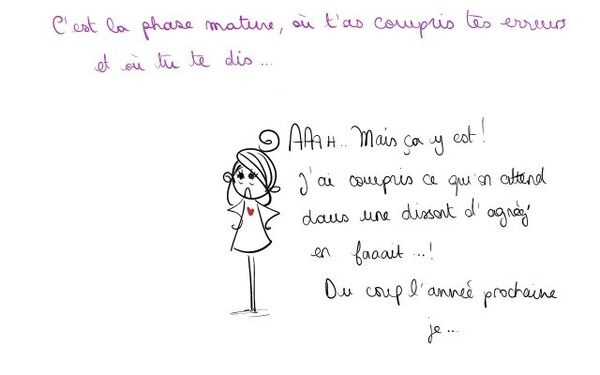 C'est la phase mature, où t'as compris tes erreurs
et où tu te dis...
AAAH.. Mais ça y est!
J'ai compris ce qu'on attend
dans une dissert d'agrég'
en faaait...!
Du coup l'année prochaine
je...